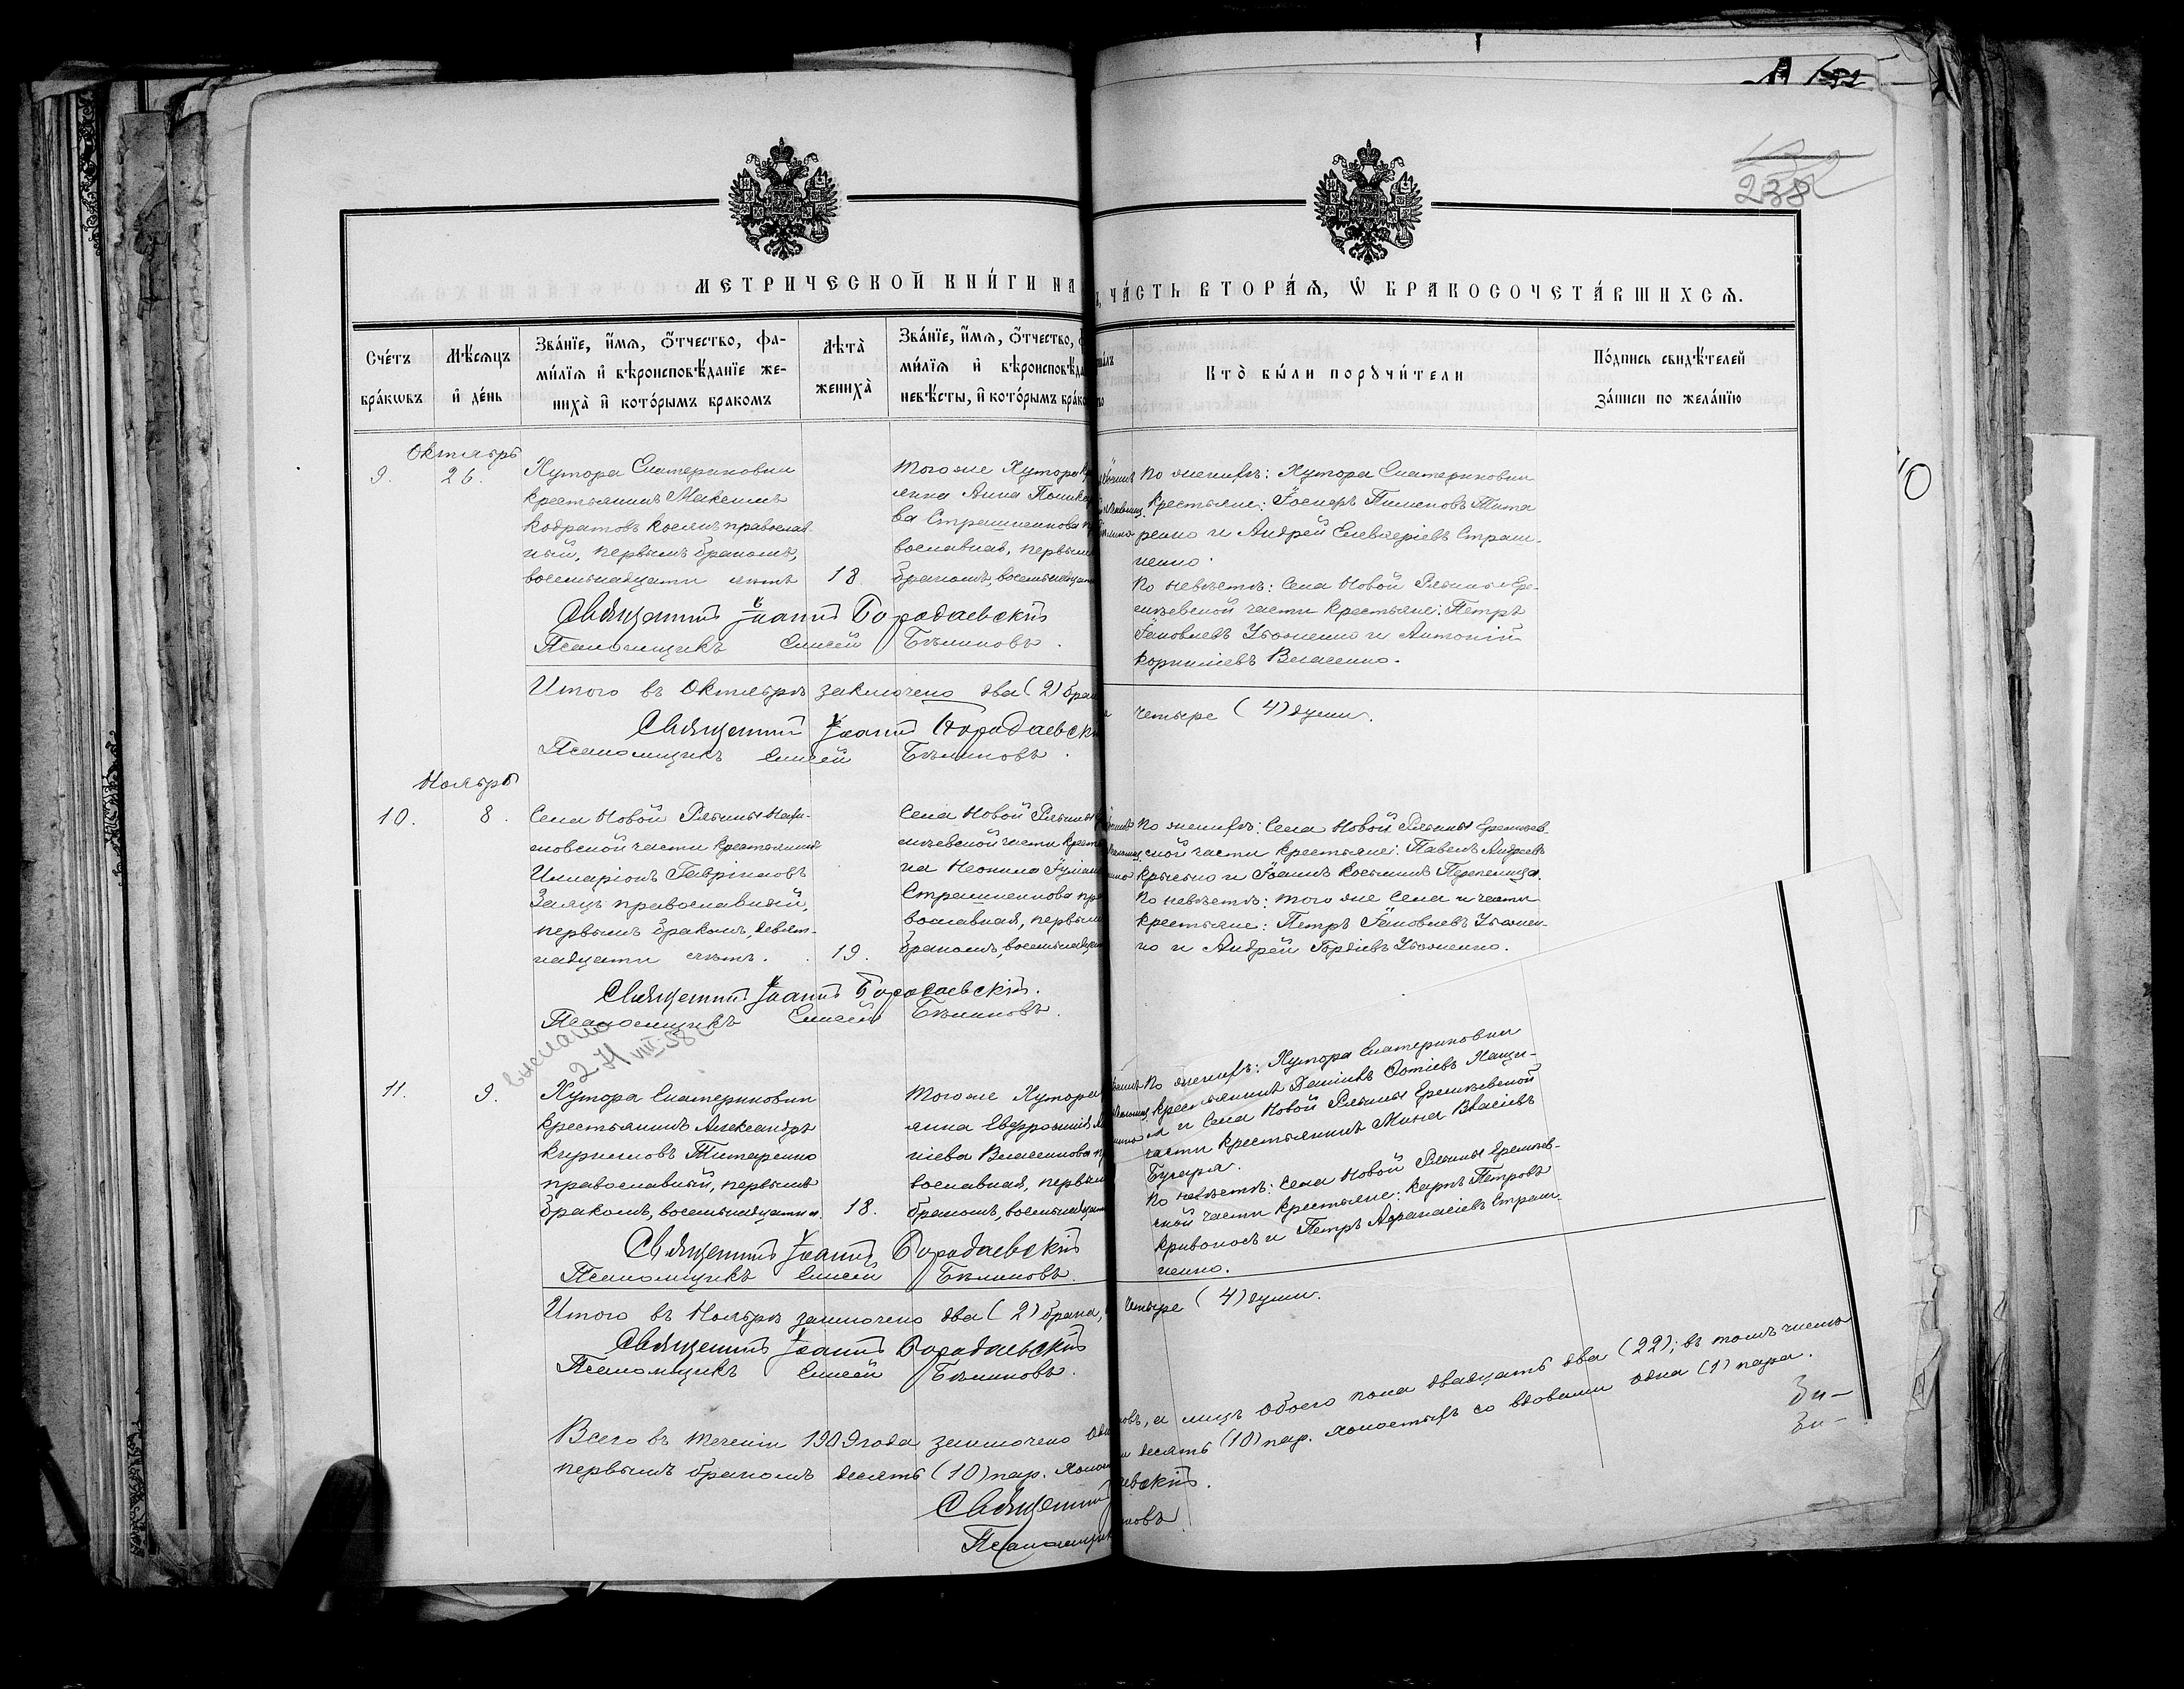 238
МЕТРИЧЕСКОЙ КНИ́ГИ НА
ЧА́СТЬ ВТОРА́Ѧ, Ѡ БРАКОСОЧЕТА́ВШИХСѦ.
Сче́тъ бра́кѡвъ
Мѣ́сѧцъ и҆ де́нь
Зва́нїе, и҆́мѧ, ѻ҆́тчество, фа-
ми́лїѧ и҆ вѣроисповѣ́данїе же-
ниха̀ и҆ кото́рымъ бракомъ
Лѣта̀ жениха̀
Зва́нїе, и҆́мѧ, ѻ҆́тчество,
ми́лїѧ и҆ вѣроисповѣ́да
невѣ́сты, и҆ кото́рымъ бра́ко
Кто̀ бы́ли порꙋчи́тели
По́дпись свидѣ́телей
за́писи по жела́нїю
Октябрь
9. 26.
Хутора Екатериновки
крестьянинъ Максимъ
Кодратовъ Косякъ православ
ный, первымъ бракомъ,
восемьнадцати лѣтъ 18
Того же Хутора кр
янка Анна Поликар
ва Страшненкова пра
вославная, первым
бракомъ, восемьнадцат
По женихѣ: Хутора Екатериновки
крестьяне: Госифъ Пименовъ Тита
ренко и Андрей Елевѳеріевъ Страш-
ненко.
По невѣстѣ: Села Новой Рябины Ере-
мѣевской части крестьяне: Петръ
Іаковлевъ Убоженко и Антоній
Корниліевъ Власенко.
Священникъ Іоаннъ Бородаевскій
Псаломщикъ Елисей Бѣликовъ.
Итого въ Октябрѣ заключено два (2) бра
четыре (4) души.
Священникъ Іоаннъ Бородаевскі
Псаломщикъ Елисей Бѣликовъ.
Ноябрь
10. 8.
Села Новой Рябины
новской части крестьянинъ
Илларіонъ Гавріиловъ
Заяцъ православный,
первымъ бракомъ, девят-
надцати лѣтъ. 19.
Села Новой Рябины
мѣевской части кресть
ка Неонила
Страшненкова пра
вославная, первым
бракомъ, восемьнадцат
По женихѣ: Села Новой Рябины Еремѣев-
ской части крестьяне: Павелъ Андреевъ
и Іоаннъ Косьминъ Перепелица.
По невѣстѣ: того же села и части
крестьяне: Петръ Іаковлевъ Убожен-
ко и Андрей Гордіевъ Убоженко.
Священникъ Іоаннъ Бородаевскій.
Псаломщикъ Елисей Бѣликовъ.
выслано
VIII 58
11. 9.
Хутора Екатериновки
крестьянинъ Александръ
Кирилловъ Титаренко
православный, первымъ
бракомъ, восемьнадцати л. 18.
Того же Хутора
янка Евфросинія
ніева Власенкова пр
вославная, первым
бракомъ, восемьнадцат
По женихѣ: Хутора Екатериновки
крестьянинъ Даніилъ Фотіевъ
и Села Новой Рябины Еремѣевской
части крестьянинъ Мина Власіевъ
По невѣстѣ: Села Новой Рябины Еремѣев-
ской части крестьяне: Карпъ Петровъ
Кривоносъ и Петръ Аѳанасіевъ Страш-
ненко.
Священникъ Іоаннъ Бородаевскій
Псаломщикъ Елисей Бѣликовъ.
Итого въ Ноябрѣ заключено два (2) брака,
четыре (4) души.
Священникъ Іоаннъ Бородаевскій
Псаломщикъ Елисей Бѣликовъ.
Всего въ теченіи 1909 года заключено оди
овъ, а лицъ обоего пола двадцать два (22); въ томъ числѣ
первымъ бракомъ десять (10) пар. холос
десять (10) пар. холостыхъ со вдовами одна (1) пара.
Священник
евскій.
Псаломщик
ковъ